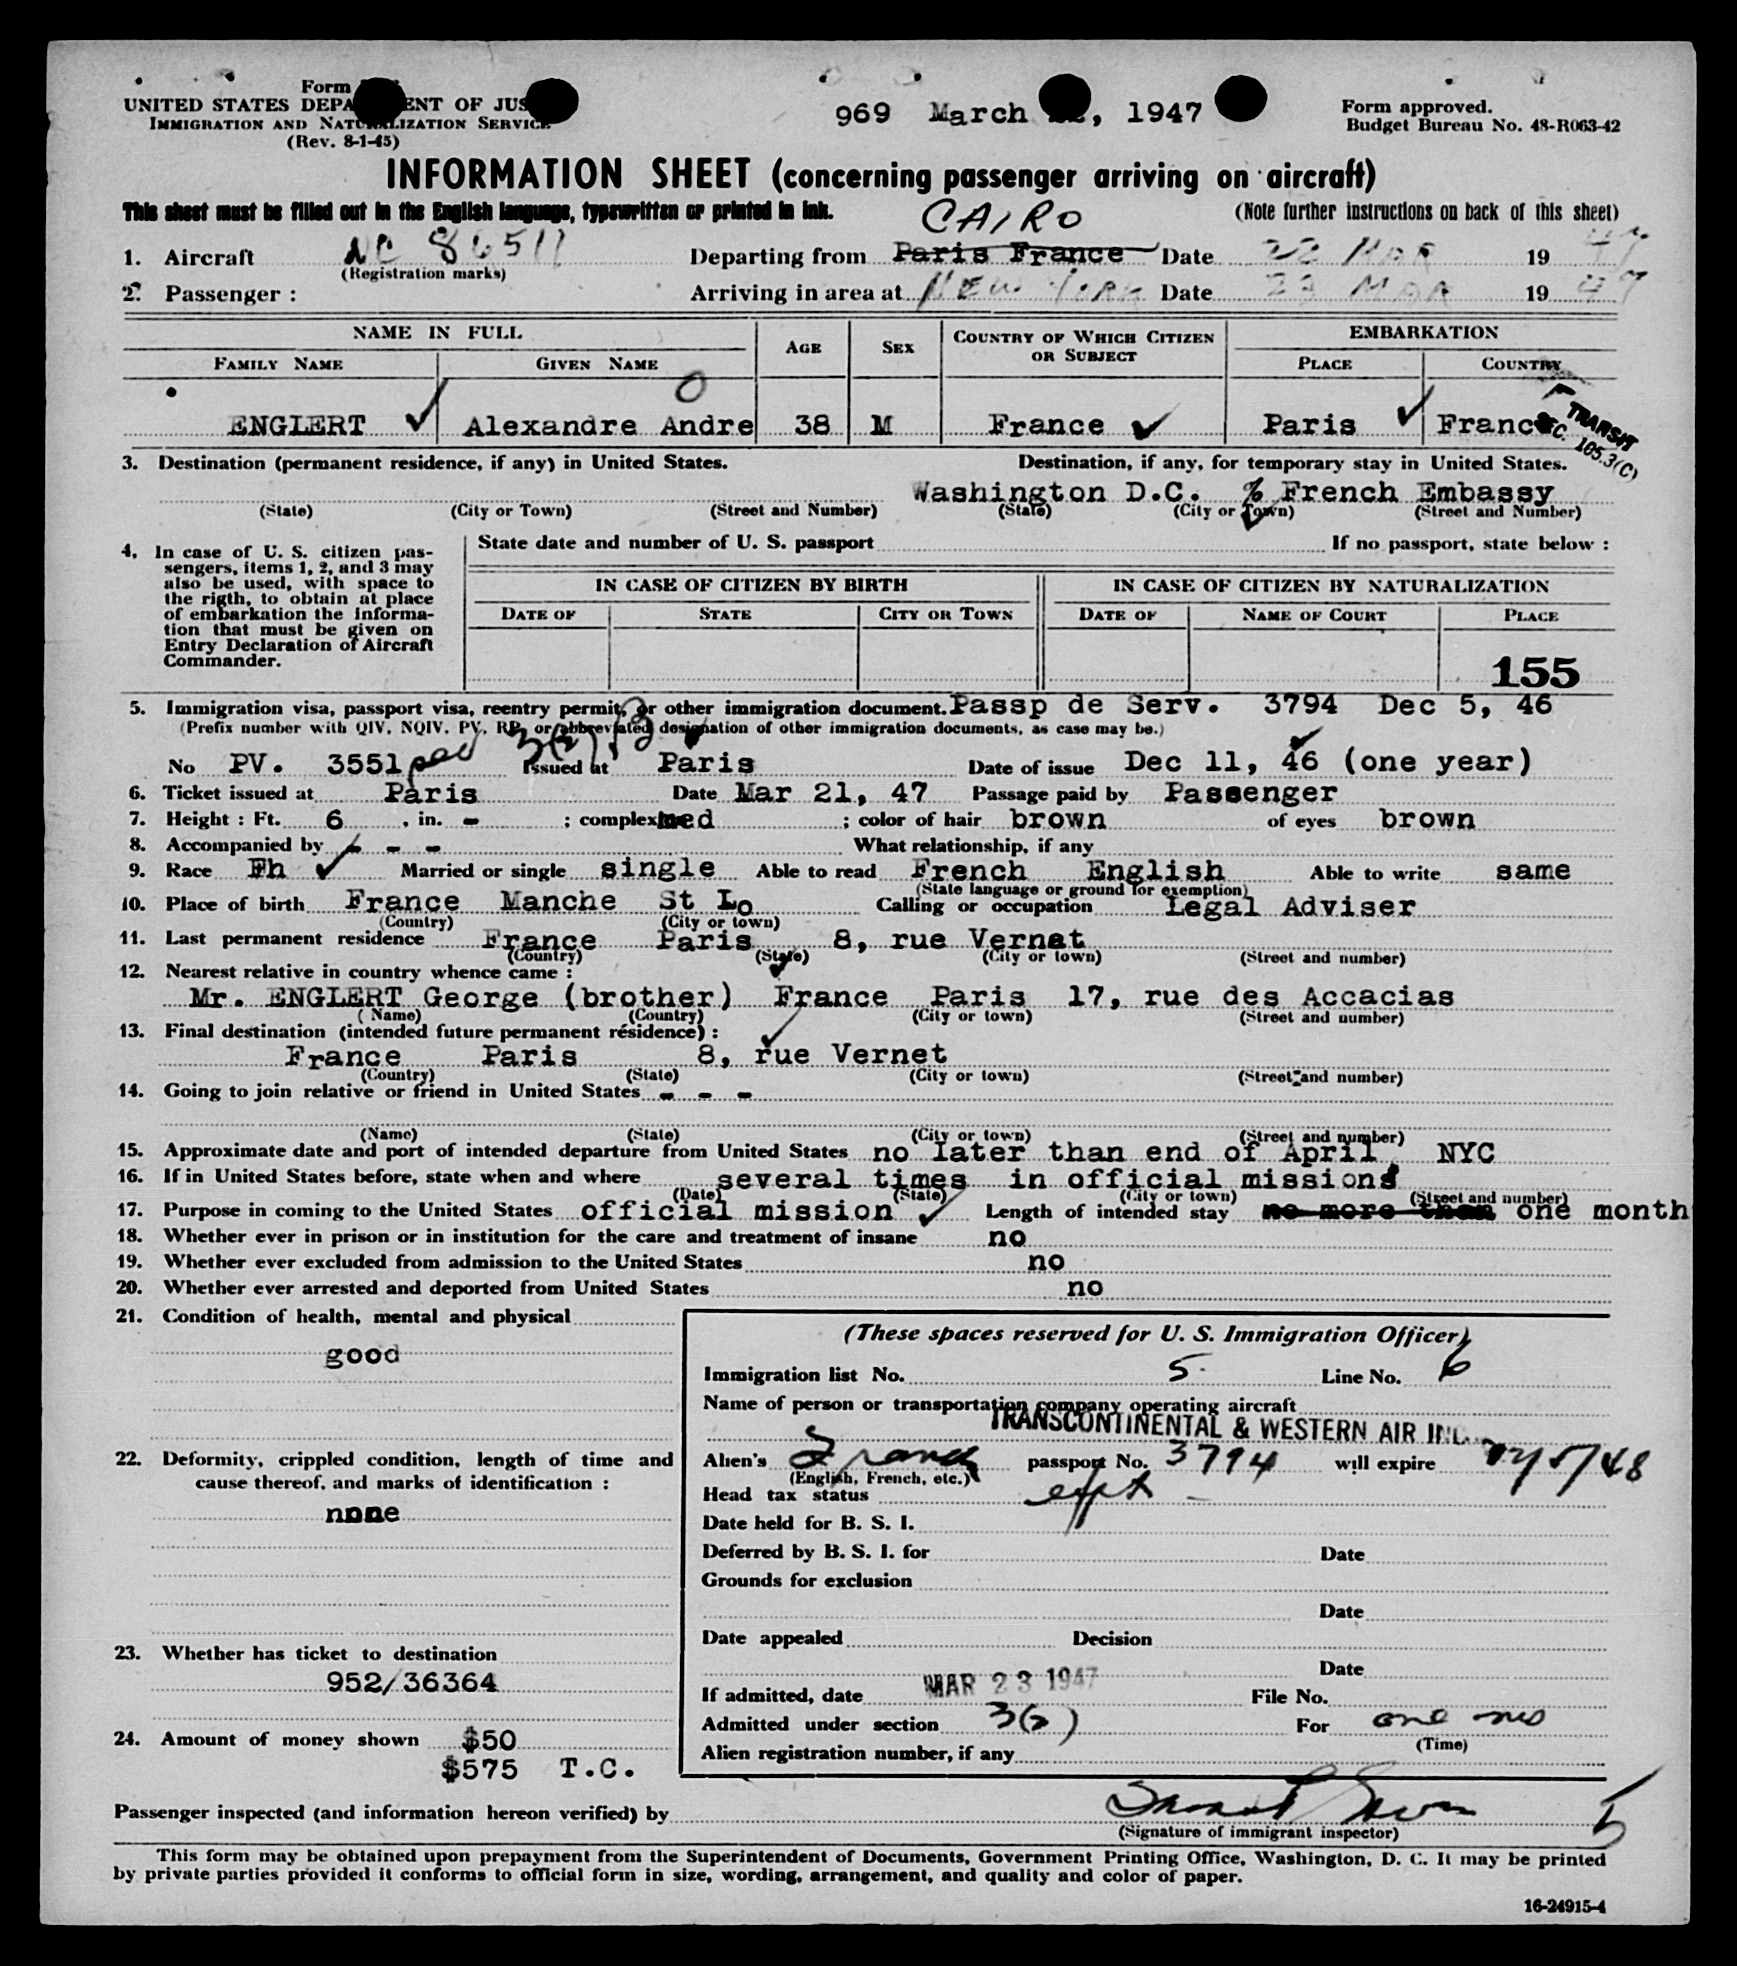 Form
UNITED STATES DEPA ENT OF JUS
IMMIGRATION AND NATURALIZATION SERVICE
(Rev. 8-1-45)
969 March , 1947
Form approved.
Budget Bureau No. 48-R063-42
INFORMATION SHEET (concerning passenger arriving on aircraft)
This sheet must be filled out in the English language, typewritten or printed in ink.
(Note further instructions on back of this sheet)
CAIRO
1. Aircraft NC 86511 Departing from Paris France Date 22 MAR 19 47
(Registration marks)
2. Passenger : Arriving in area at NEW YORK Date 23 MAR 19 47
NAME IN FULL AGE SEX COUNTRY OF WHICH CITIZEN OR SUBJECT EMBARKATION
FAMILY NAME GIVEN NAME PLACE COUNTRY
O
ENGLERT Alexandre Andre 38 M France Paris France
TRANSIT
SEC. 105.3(C)
3. Destination (permanent residence, if any) in United States. Destination, if any, for temporary stay in United States.
Washington D.C. % French Embassy
(State) (City or Town) (Street and Number) (State) (City or Town) (Street and Number)
4. In case of U. S. citizen pas-
sengers, items 1, 2, and 3 may
also be used, with space to
the rigth, to obtain at place
of embarkation the informa-
tion that must be given on
Entry Declaration of Aircraft
Commander.
State date and number of U. S. passport If no passport, state below :
IN CASE OF CITIZEN BY BIRTH IN CASE OF CITIZEN BY NATURALIZATION
DATE OF STATE CITY OR TOWN DATE OF NAME OF COURT PLACE
155
5. Immigration visa, passport visa, reentry permit, or other immigration document. Passp de Serv. 3794 Dec 5, 46
(Prefix number with QIV, NQIV, PV, RP, or abbreviated designation of other immigration documents, as case may be.)
No PV. 3551 Issued at Paris Date of issue Dec 11, 46 (one year)
6. Ticket issued at Paris Date Mar 21, 47 Passage paid by Passenger
7. Height : Ft. 6 , in. - ; complex med ; color of hair brown of eyes brown
8. Accompanied by - - - What relationship, if any
9. Race Fh Married or single single Able to read French English Able to write same
(State language or ground for exemption)
10. Place of birth France Manche St Lo Calling or occupation Legal Adviser
(Country) (City or town)
11. Last permanent residence France Paris 8, rue Vernet
(Country) (State) (City or town) (Street and number)
12. Nearest relative in country whence came :
Mr. ENGLERT George (brother) France Paris 17, rue des Accacias
(Name) (Country) (City or town) (Street and number)
13. Final destination (intended future permanent résidence) :
France Paris 8, rue Vernet
(Country) (State) (City or town) (Street and number)
14. Going to join relative or friend in United States - - -
(Name) (State) (City or town) (Street and number)
15. Approximate date and port of intended departure from United States no later than end of April, NYC
16. If in United States before, state when and where several times in official missions
(Date) (State) (City or town) (Street and number)
17. Purpose in coming to the United States official mission Length of intended stay no more than one month
18. Whether ever in prison or in institution for the care and treatment of insane no
19. Whether ever excluded from admission to the United States no
20. Whether ever arrested and deported from United States no
21. Condition of health, mental and physical
good
22. Deformity, crippled condition, length of time and
cause thereof, and marks of identification :
none
23. Whether has ticket to destination
952/36364
24. Amount of money shown $50
$575 T.C.
(These spaces reserved for U. S. Immigration Officer)
Immigration list No. 5 Line No. 6
Name of person or transportation company operating aircraft
TRANSCONTINENTAL & WESTERN AIR INC.
Alien's French passport No. 3794 will expire
(English, French, etc.)
Head tax status
Date held for B. S. I.
Deferred by B. S. I. for Date
Grounds for exclusion
Date
Date appealed Decision
Date
If admitted, date MAR 23 1947 File No.
Admitted under section 3(2) For one mo
(Time)
Alien registration number, if any
Passenger inspected (and information hereon verified) by
(Signature of immigrant inspector)
This form may be obtained upon prepayment from the Superintendent of Documents, Government Printing Office, Washington, D. C. It may be printed
by private parties provided it conforms to official form in size, wording, arrangement, and quality and color of paper.
16-24915-4